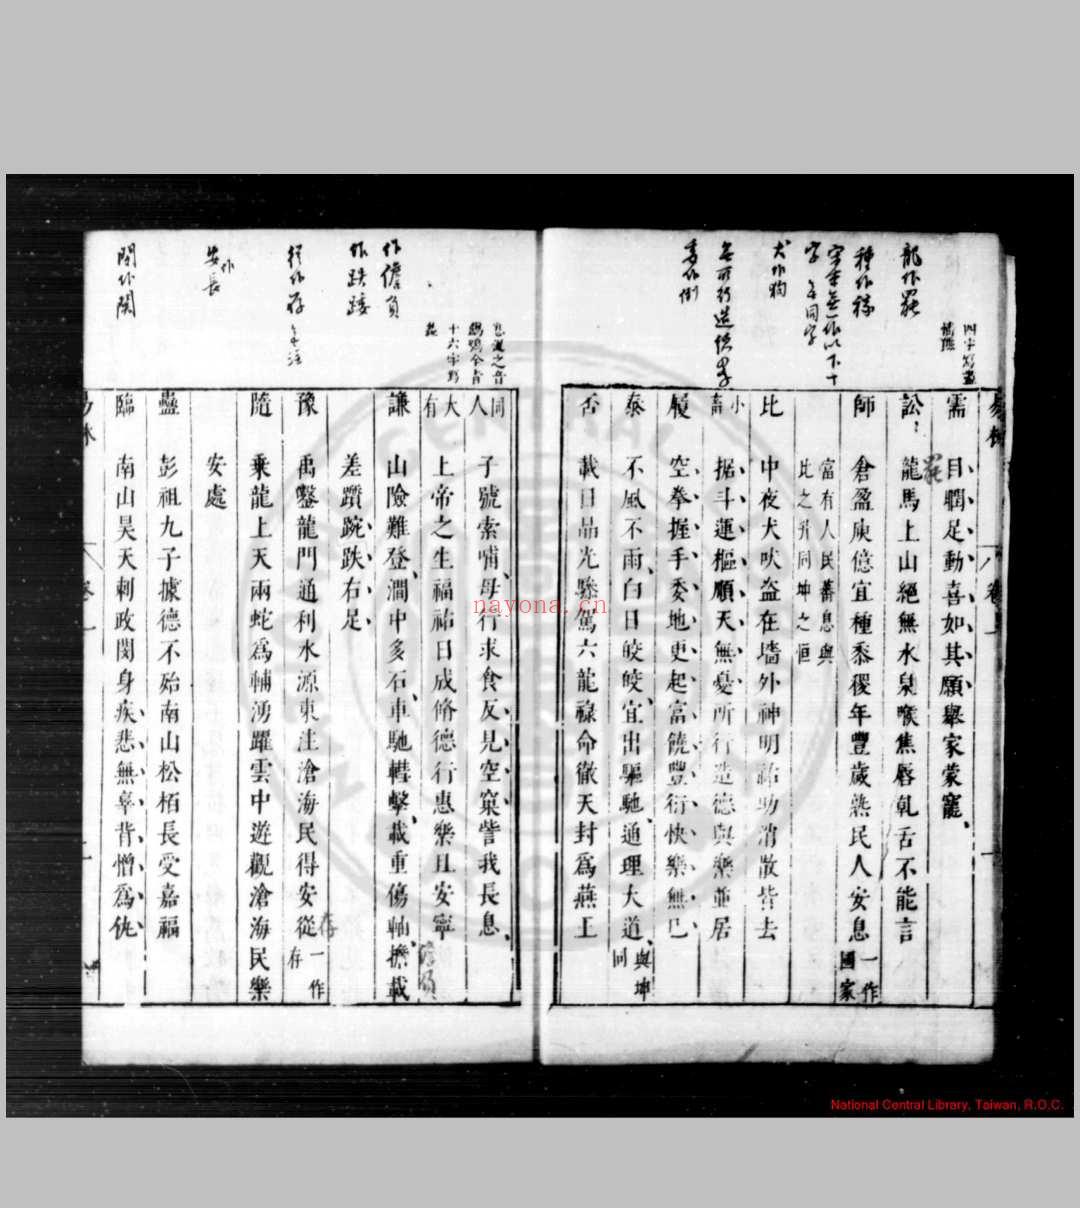 需 目瞤足動喜如其願舉家蒙寵
訟 龍馬上山絕無水泉喉焦唇乾舌不能言
師 倉盈庾億宜種黍稷年豐歲熟民人安息一作國家
富有人民蕃息與
比之升同坤之恒
比 中夜犬吠盜在墻外神明祐助消散皆去
小畜 据斗運樞順天無憂所行造德與樂並居
履 空拳握手委地更起富饒豐衍快樂無已
泰 不風不雨白日皎皎宜出驅馳通理大道與坤同
否 載日晶光驂駕六龍祿命徹天封為燕王
同人 子號索哺母行求食反見空窠訾我長息
大有 上帝之生福祐日成脩德行惠樂且安寧
謙 山險難登澗中多石車馳轊擊載重傷軸擔載
差躓踠跌右足
豫 禹鑿龍門通利水源東注滄海民得安從一作存
隨 乘龍上天兩蛇為輔湧躍雲中遊觀滄海民樂
安處
蠱 彭祖九子據德不殆南山松栢長受嘉福
臨 南山昊天刺政閔身疾悲無辜背憎為仇
龍作罷
種作稼
字 年同字
犬作狗
委作倒
作儋負
作跌踒
從作存
作安長
閔作関
nayona.cn
National Central Library, Taiwan, R.O.C.